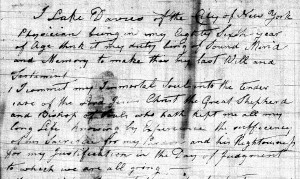 I Lake Davies of the City of New York
Physician being in my Eighty Sixth year
of Age think it my duty being of Sound Mind
and Memory to make this my last Will and
Testament
I commit my Immortal Soul into the tender
care of the Lord Christ the Great Shepherd
and Bishop of Souls, who hath kept me all my
long Life knowing by Experience the sufficiency
of his Sacrifice for my and his Righteousness
for my Justification in the Day of Judgment
to which we are all going